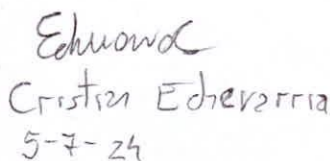 Edmond
Cristian Echevarria
5-7-24